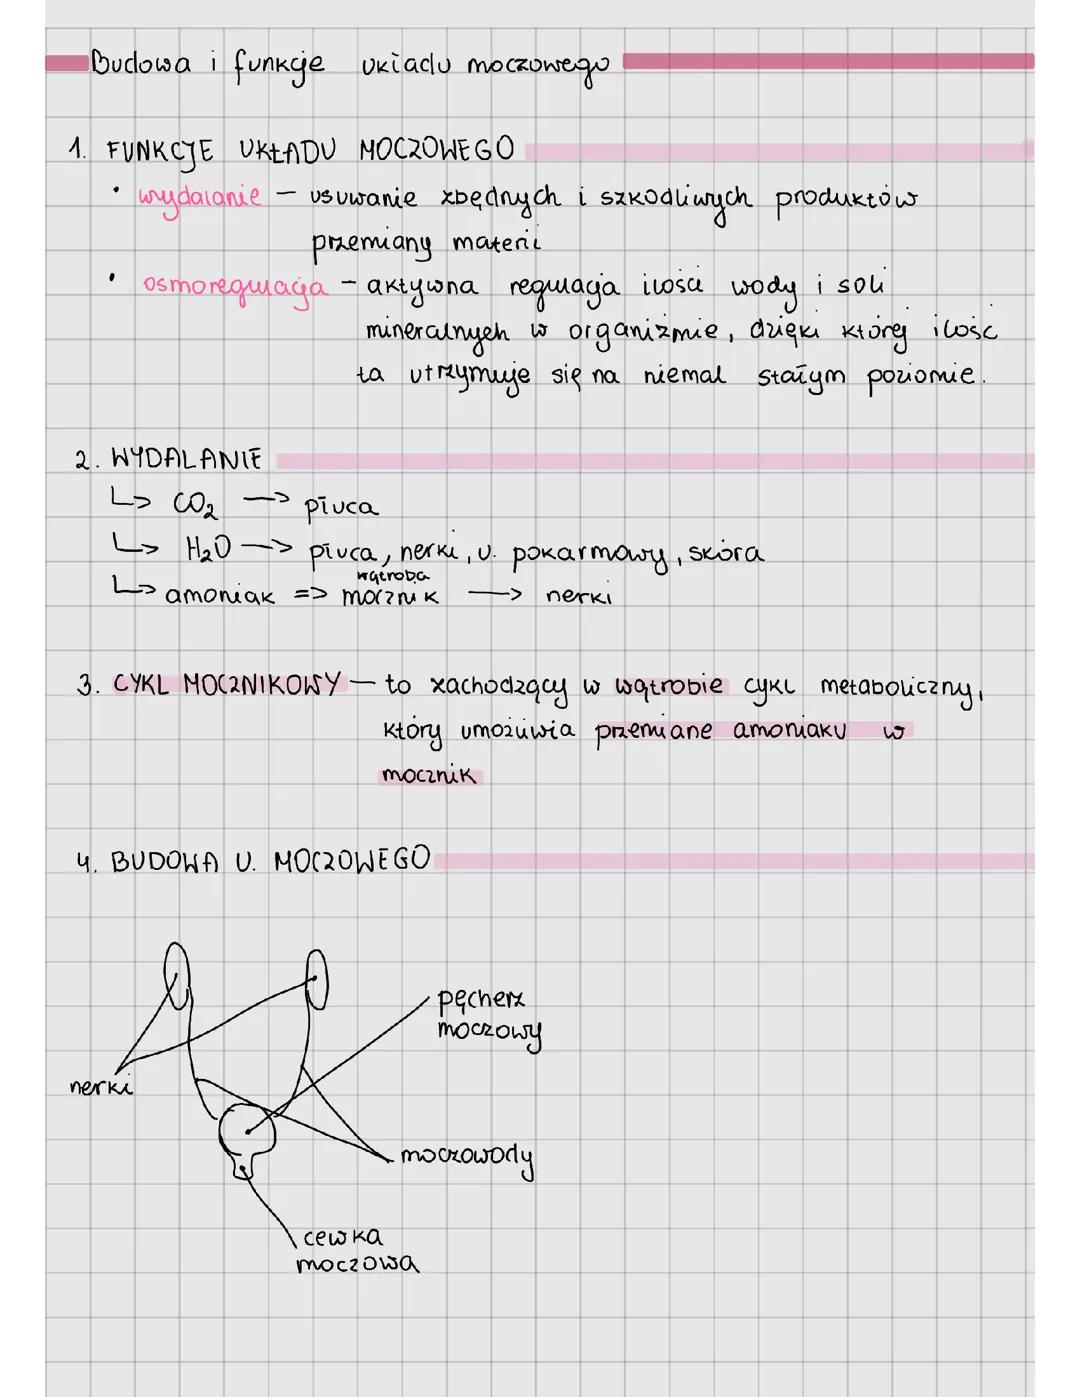 Budowa i funkcje układu moczowego
1. FUNKCJE UKŁADU MOCZOWEGO
• wydalanie – usuwanie zbędnych i szkodliwych produktów
przemiany materii
• osmoregulacja – aktywna regulacja ilości wody i soli
mineralnych w organizmie, dzięki której ilość
ta utrzymuje się na niemal stałym poziomie.
2. WYDALANIE
↳ CO₂ → płuca
↳ H₂O → płuca, nerki, u. pokarmowy, skóra
wątroba
↳ amoniak => mocznik → nerki
3. CYKL MOCZNIKOWY – to zachodzący w wątrobie cykl metaboliczny,
który umożliwia przemiane amoniaku w
mocznik
4. BUDOWA U. MOCZOWEGO
pęcherz
moczowy
nerki
moczowody
cewka
moczowa